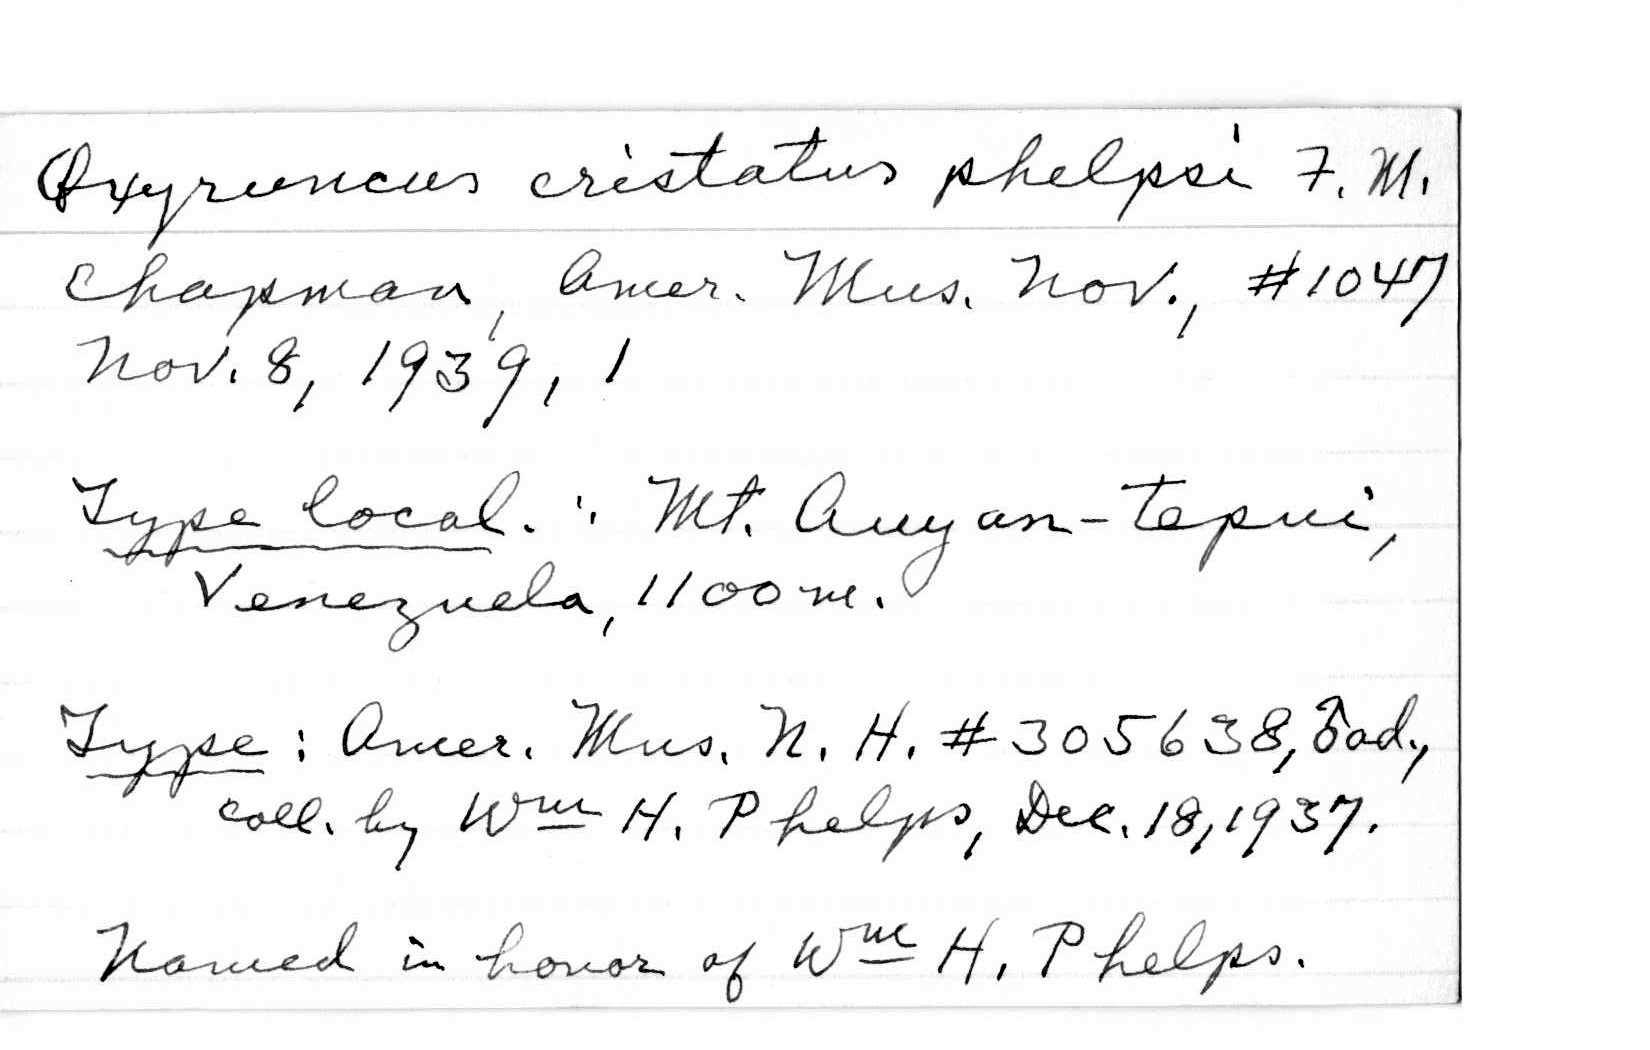 Oxyruncus cristatus phelpsi F. M.
Chapman, Amer. Mus. Nov., #1047
Nov. 8, 1939, 1
Type local.: Mt. Auyan-tepui,
Venezuela, 1100 m.
Type: Amer. Mus. N. H. #305638, ♂ ad.,
coll. by Wm H. Phelps, Dec. 18, 1937.
Named in honor of Wm H. Phelps.